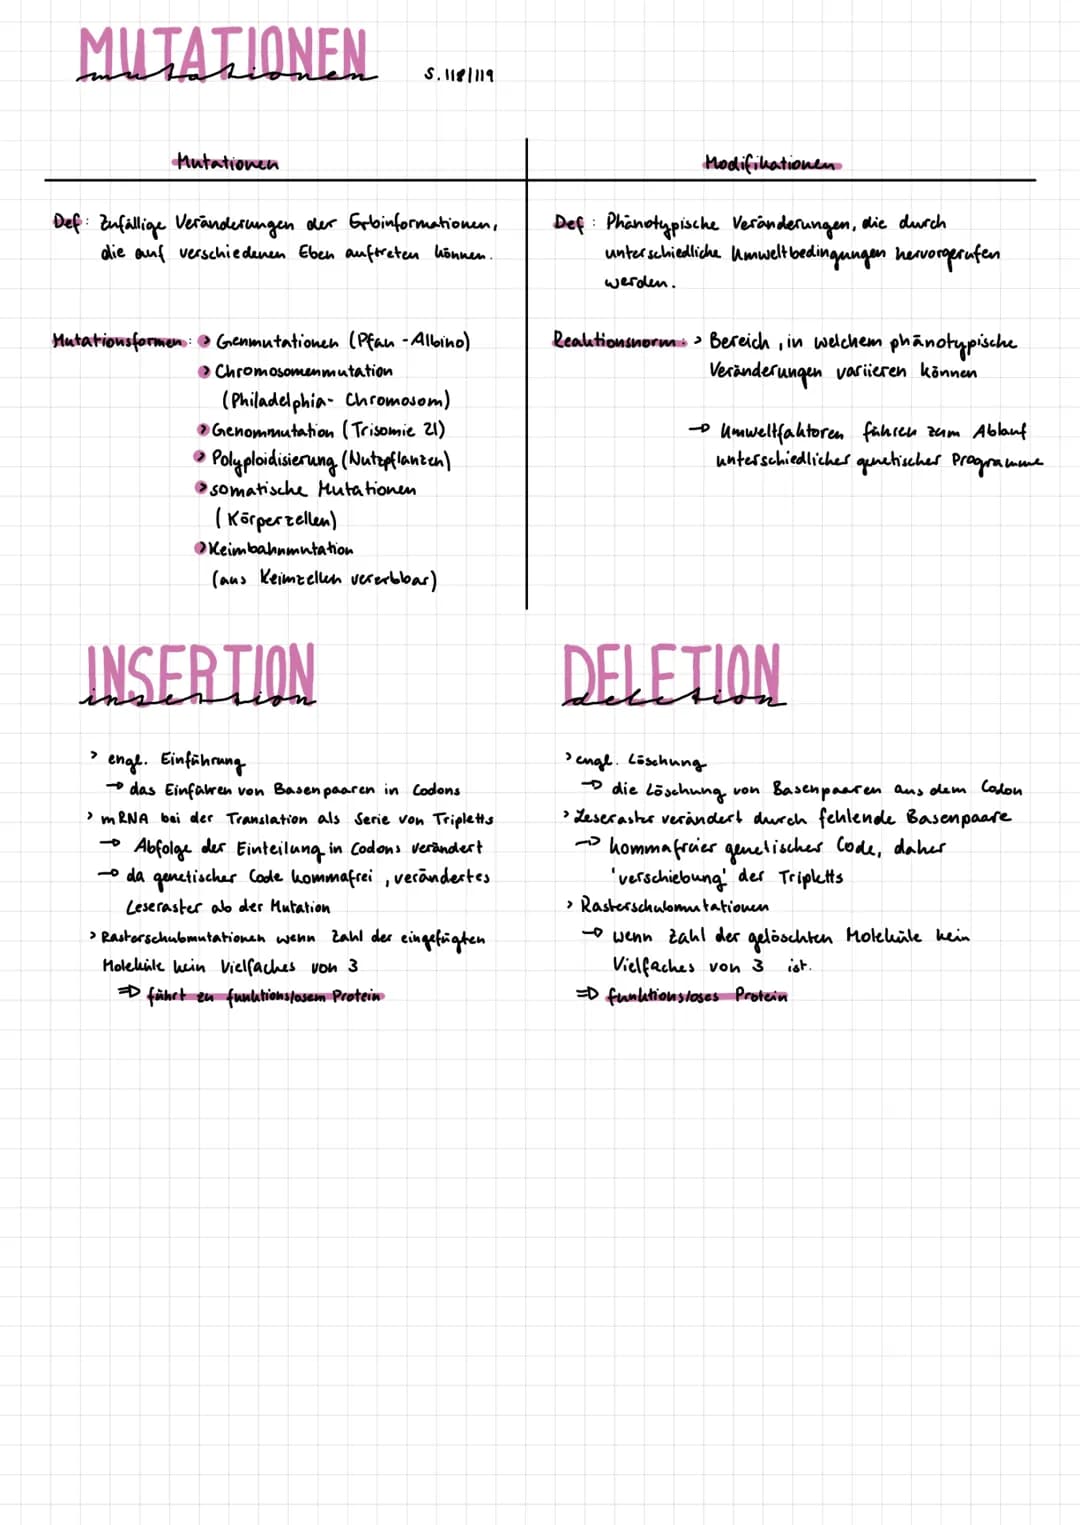 MUTATIONEN
mutationen
S. 118/119
Mutationen
Def: Zufällige Veränderungen der Erbinformationen,
die auf verschiedenen Eben auftreten können.
Mutationsformen: > Genmutationen (Pfau - Albino)
> Chromosomenmutation
(Philadelphia- Chromosom)
> Genommutation (Trisomie 21)
> Polyploidisierung (Nutzpflanzen)
> somatische Mutationen
(Körperzellen)
> Keimbahnmutation
(aus Keimzellen vererbbar)
Modifikationen
Def: Phänotypische Veränderungen, die durch
unterschiedliche Umweltbedingungen hervorgerufen
werden.
Reaktionsnorm: > Bereich, in welchem phänotypische
Veränderungen variieren können
→ Umweltfaktoren führen zum Ablauf
unterschiedlicher genetischer Programme
INSERTION
insertion
> engl. Einführung
→ das Einführen von Basenpaaren in Codons
> mRNA bei der Translation als Serie von Tripletts
→ Abfolge der Einteilung in Codons verändert
→ da genetischer Code kommafrei, verändertes
Leseraster ab der Mutation
> Rasterschubmutationen wenn Zahl der eingefügten
Moleküle kein Vielfaches von 3
⇒ führt zu funktionslosem Protein
DELETION
deletion
> engl. Löschung
→ die Löschung von Basenpaaren aus dem Codon
> Leseraster verändert durch fehlende Basenpaare
→ kommafreier genetischer Code, daher
'verschiebung' der Tripletts
> Rasterschubmutationen
→ wenn Zahl der gelöschten Moleküle kein
Vielfaches von 3 ist.
⇒ funktionsloses Protein